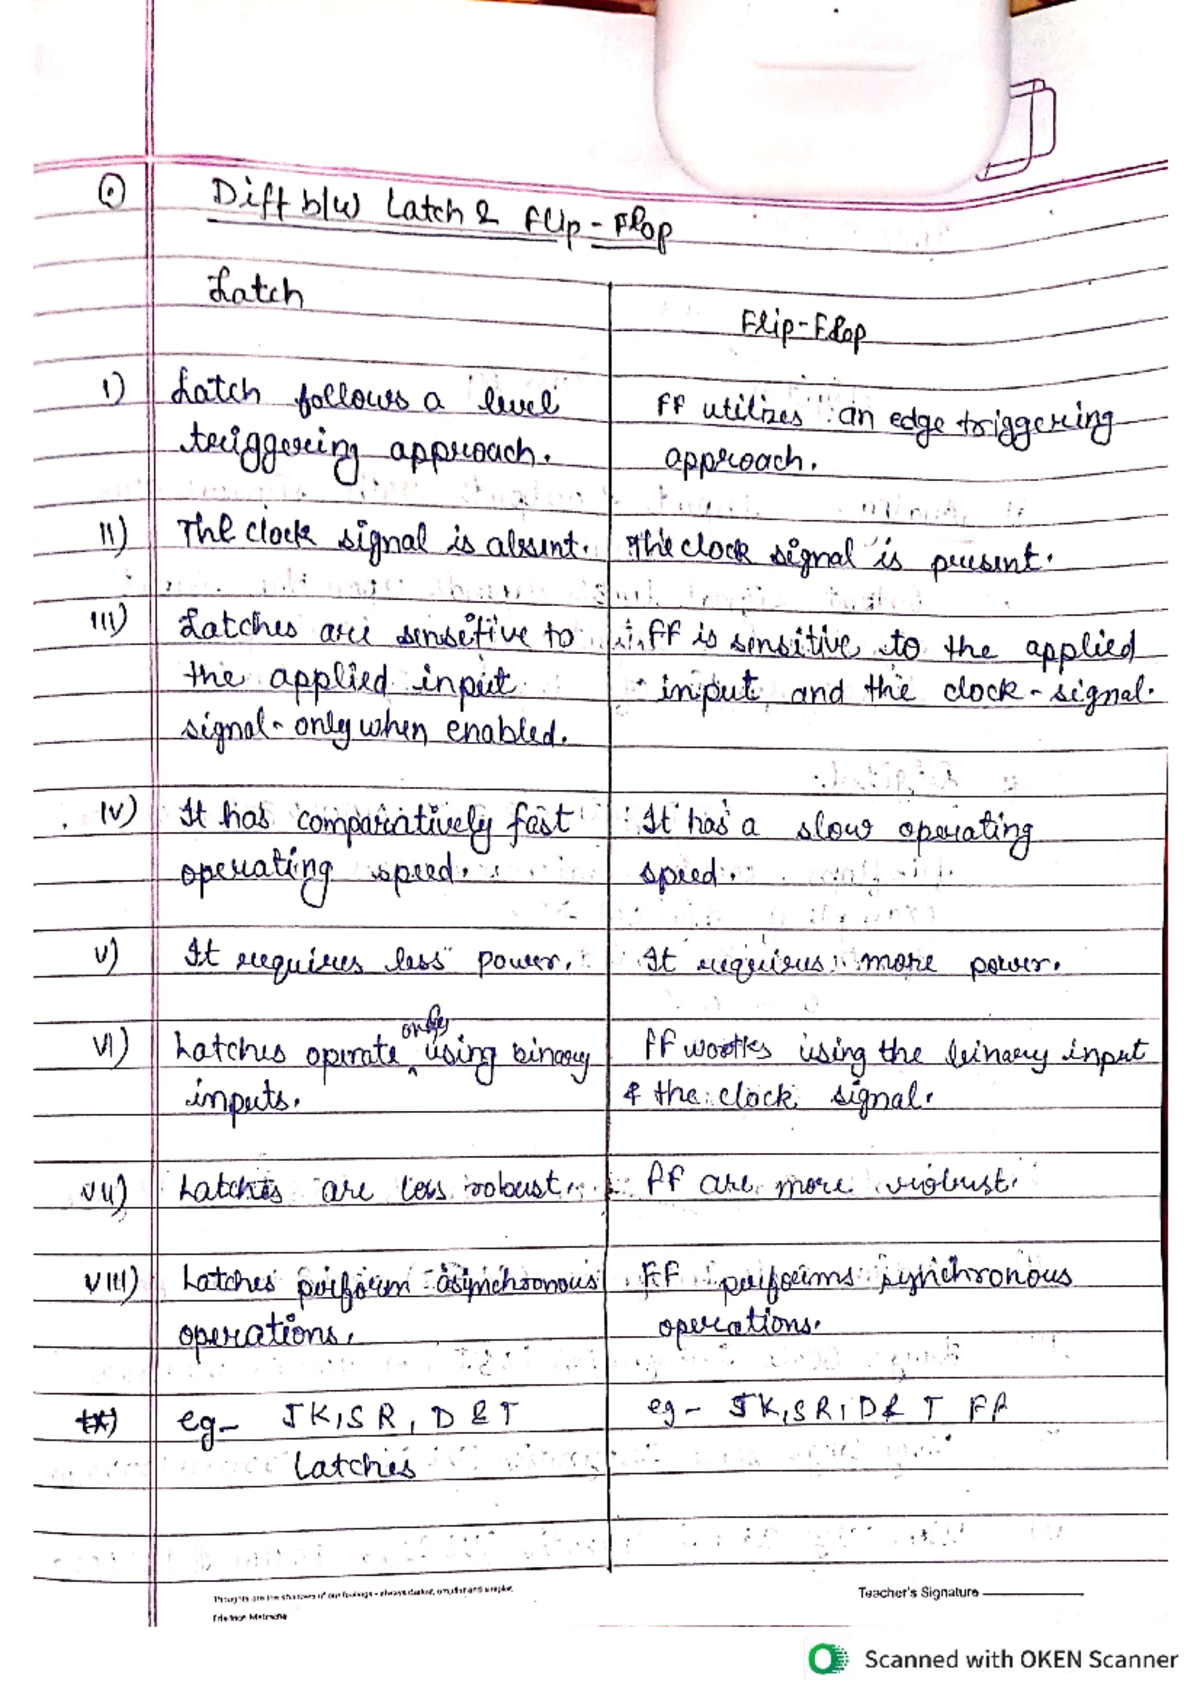 Diff b/w Latch & Flip-Flop
Latch
Flip-Flop
I) Latch follows a level
triggering approach.
FF utilizes an edge triggering
approach.
II) The clock signal is absent.
The clock signal is present.
III) Latches are sensitive to
the applied input
signal - only when enabled.
FF is sensitive to the applied
input and the clock - signal.
IV) It has comparatively fast
operating speed.
It has a slow operating
speed.
V) It requires less power.
It requires more power.
VI) Latches operate only using binary
inputs.
FF works using the binary input
& the clock signal.
VII) Latches are less robust.
FF are more robust.
VIII) Latches perform asynchronous
operations.
FF performs synchronous
operations.
eg- JK, SR, D & T
Latches
eg- JK, SR, D & T FF
Thoughts are the shadows of our feelings - always darker, emptier and simpler.
Teacher's Signature
Scanned with OKEN Scanner